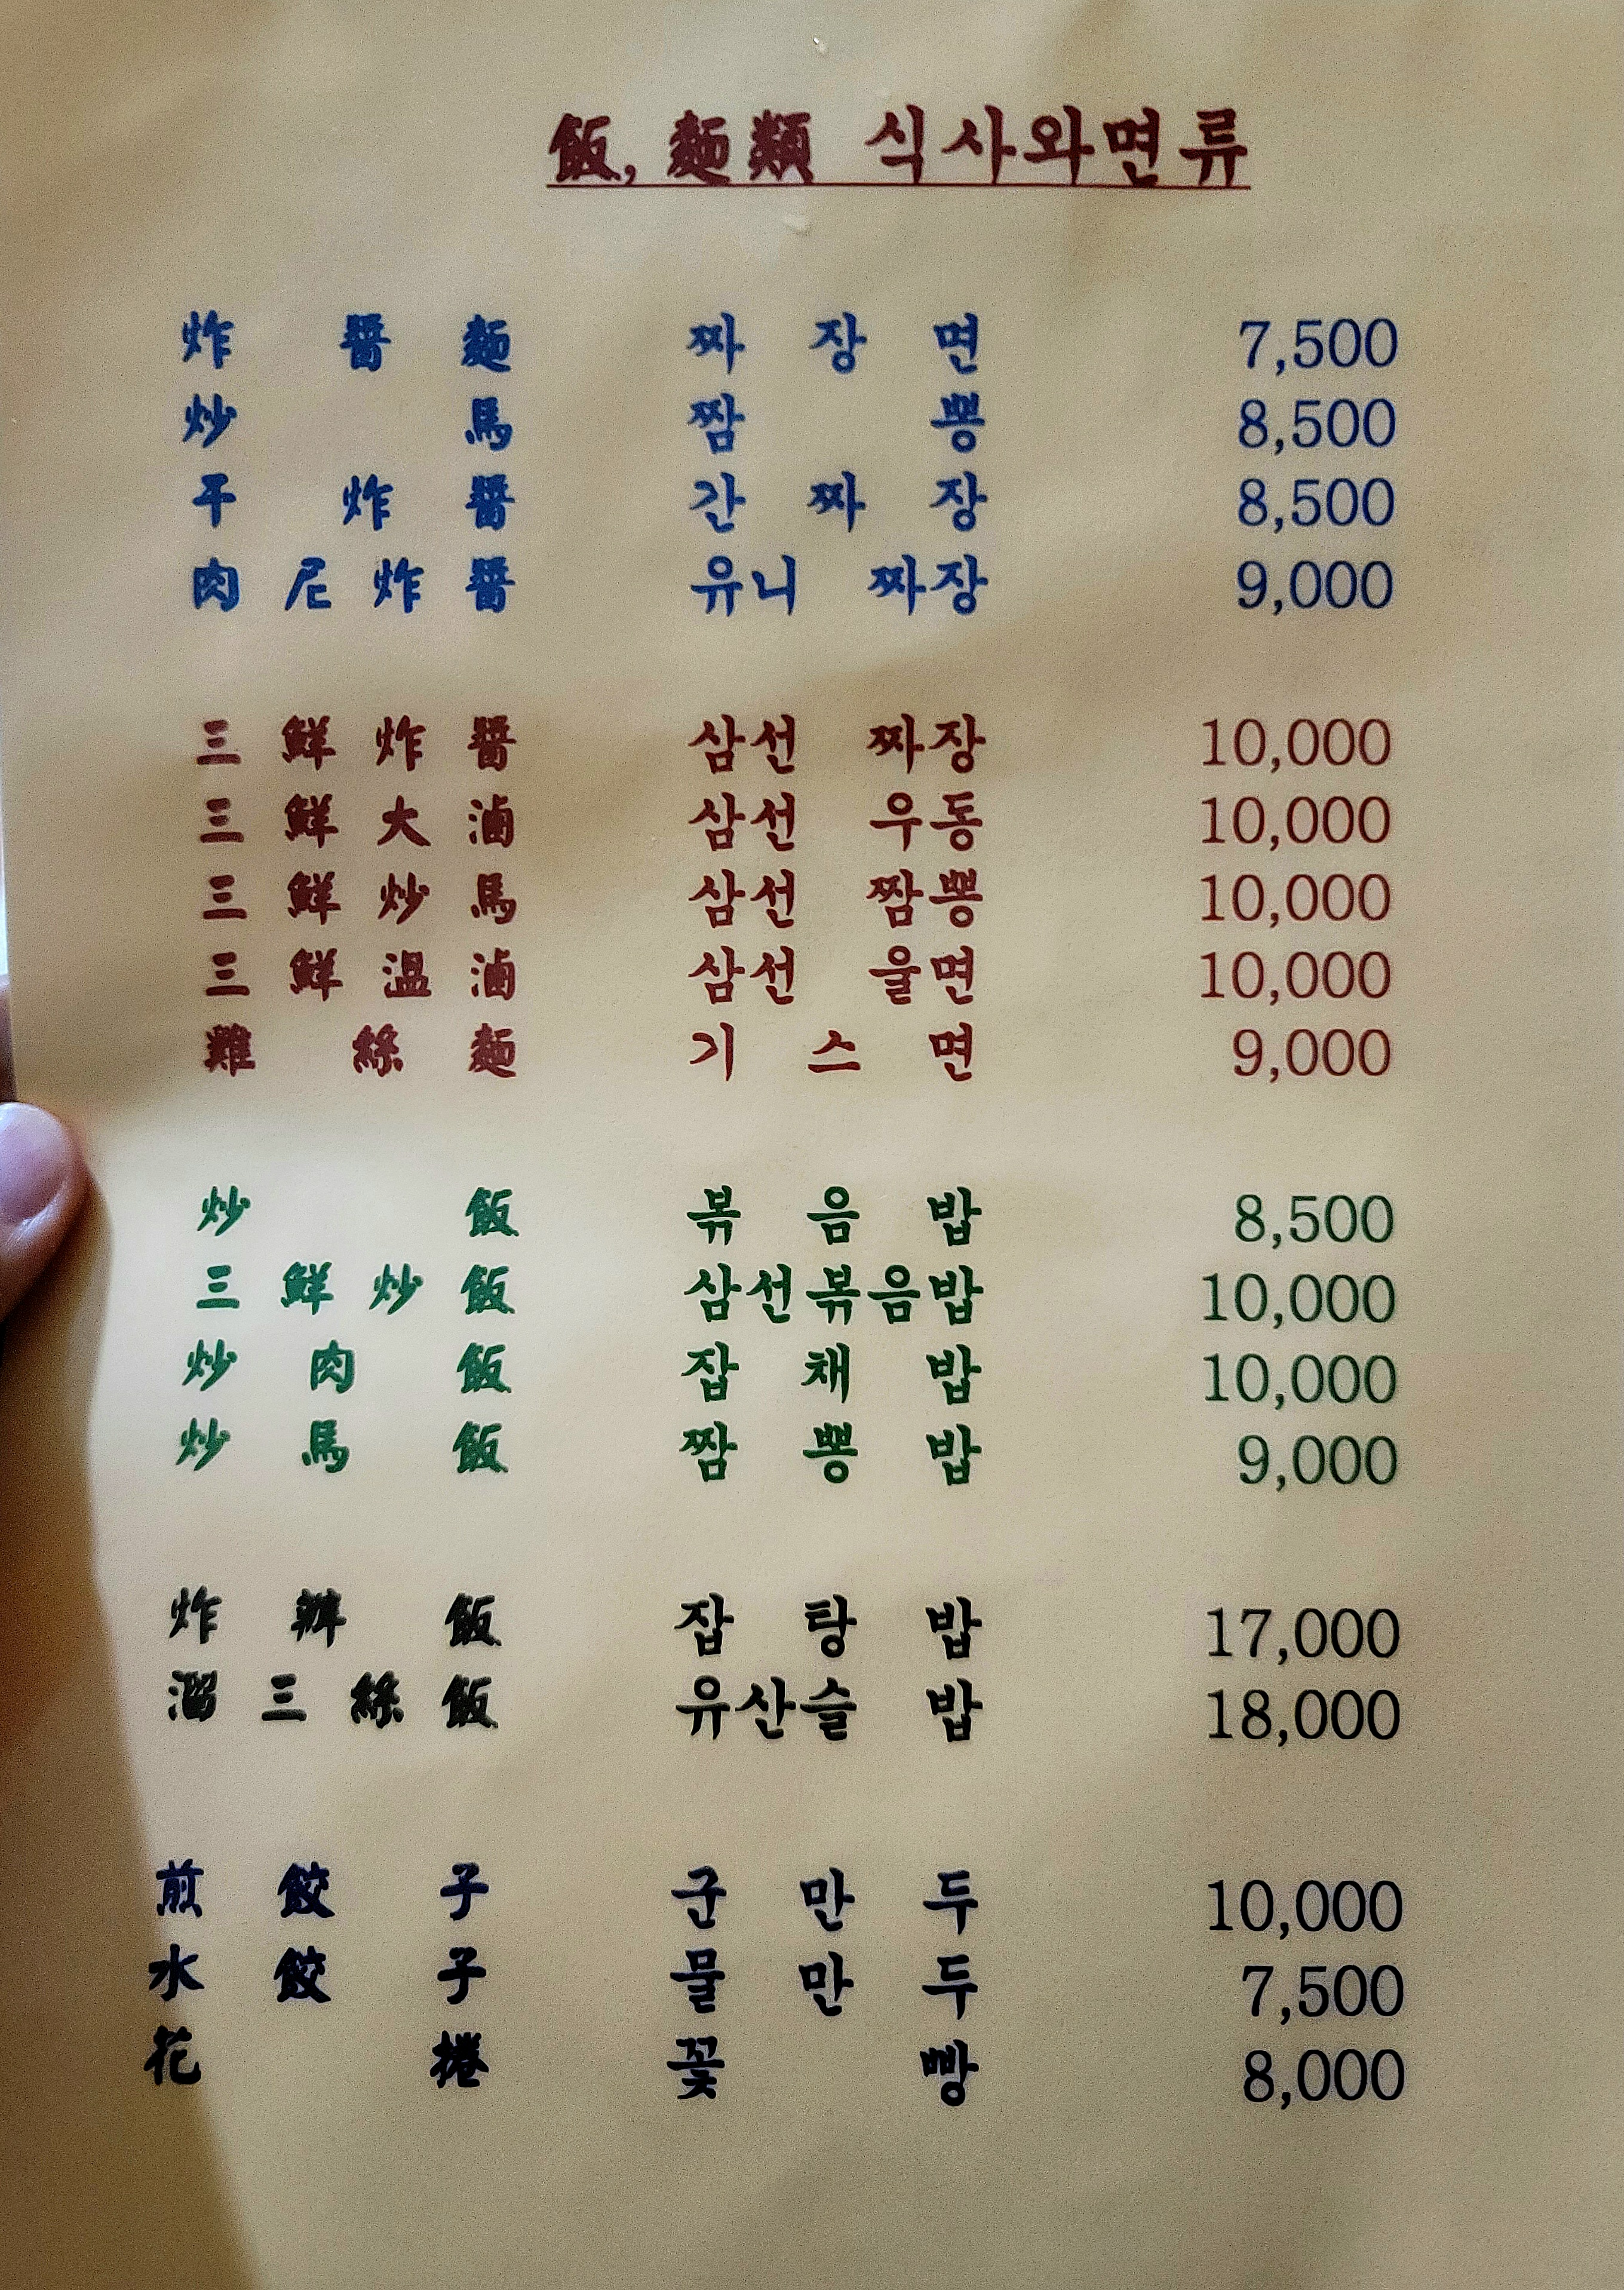 飯, 麵類 식사와면류
炸醬麵 짜장면 7,500
炒馬 짬뽕 8,500
干炸醬 간짜장 8,500
肉尼炸醬 유니 짜장 9,000
三鮮炸醬 삼선 짜장 10,000
三鮮大滷 삼선 우동 10,000
三鮮炒馬 삼선 짬뽕 10,000
三鮮溫滷 삼선 울면 10,000
難絲麵 기스면 9,000
炒飯 볶음밥 8,500
三鮮炒飯 삼선볶음밥 10,000
炒肉飯 잡채밥 10,000
炒馬飯 짬뽕밥 9,000
炸辦飯 잡탕밥 17,000
溜三絲飯 유산슬 밥 18,000
煎餃子 군만두 10,000
水餃子 물만두 7,500
花捲 꽃빵 8,000